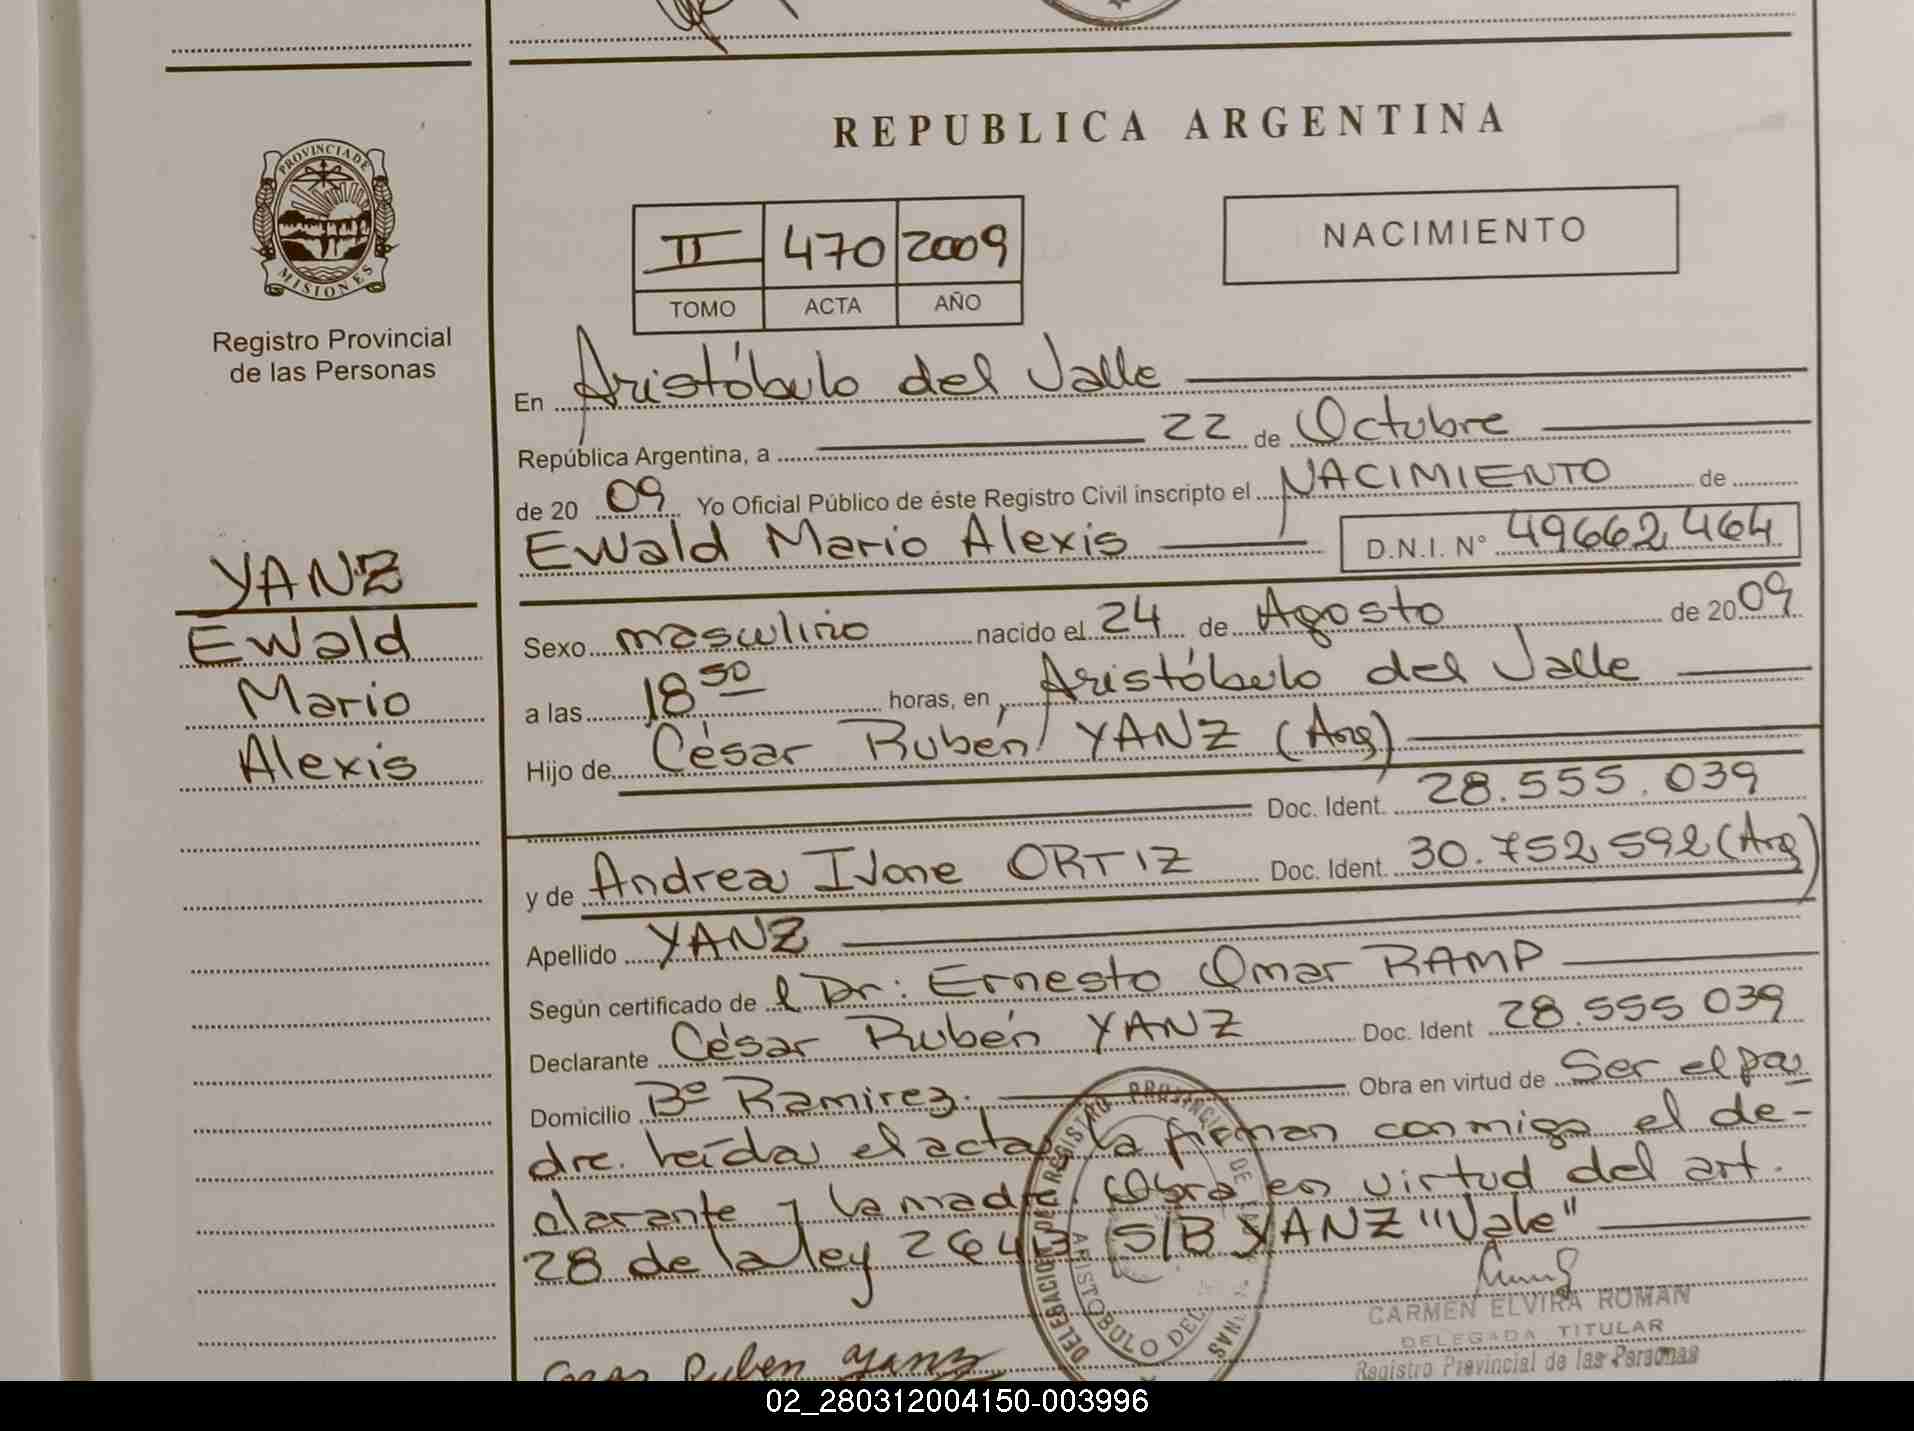 REPUBLICA ARGENTINA
PROVINCIA DE
MISIONES
Registro Provincial
de las Personas
II 470 2009
TOMO ACTA AÑO
NACIMIENTO
En Aristóbulo del Valle
República Argentina, a 22 de Octubre
de 20 09 Yo Oficial Público de éste Registro Civil inscripto el NACIMIENTO de
Ewald Mario Alexis D.N.I. N° 49662464
YANZ
Ewald
Mario
Alexis
Sexo masculino nacido el 24 de Agosto de 20 09
a las 18 50 horas, en Aristóbulo del Valle
Hijo de César Rubén YANZ (Arg)
Doc. Ident. 28.555.039
y de Andrea Ivone ORTIZ Doc. Ident. 30.752.592 (Arg)
Apellido YANZ
Según certificado de l Dr: Ernesto Omar RAMP
Declarante César Rubén YANZ Doc. Ident 28.555 039
Domicilio Bº Ramirez. Obra en virtud de Ser el pa
dre. leída el acta, la firman conmigo el de-
clarante y la madre. Obra en virtud del art.
28 de la ley 26413 S/B YANZ "Vale"
DELEGACION DEL REGISTRO PROVINCIAL DE LAS PERSONAS
ARISTOBULO DEL
CARMEN ELVIRA ROMAN
DELEGADA TITULAR
Registro Provincial de las Personas
Cesar Ruben Yanz
02_280312004150-003996